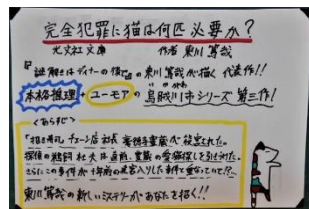 完全犯罪に猫は何匹必要か?
光文社文庫 作者 東川篤哉
『謎解きはディナーの後で』の東川篤哉が描く代表作!!
本格推理+ユーモア
いかがわ
烏賊川市シリーズ第三作!
<あらすじ>
『招き寿司』チェーン店社長 豪徳寺豊蔵が殺害された。
探偵の鵜飼杜夫は直前、豊蔵の愛猫探しを引き受けた。
さらにこの事件が十年前の迷宮入りした事件と重なっていて!?、
東川篤哉の新しいミステリーがあなたを招く!!